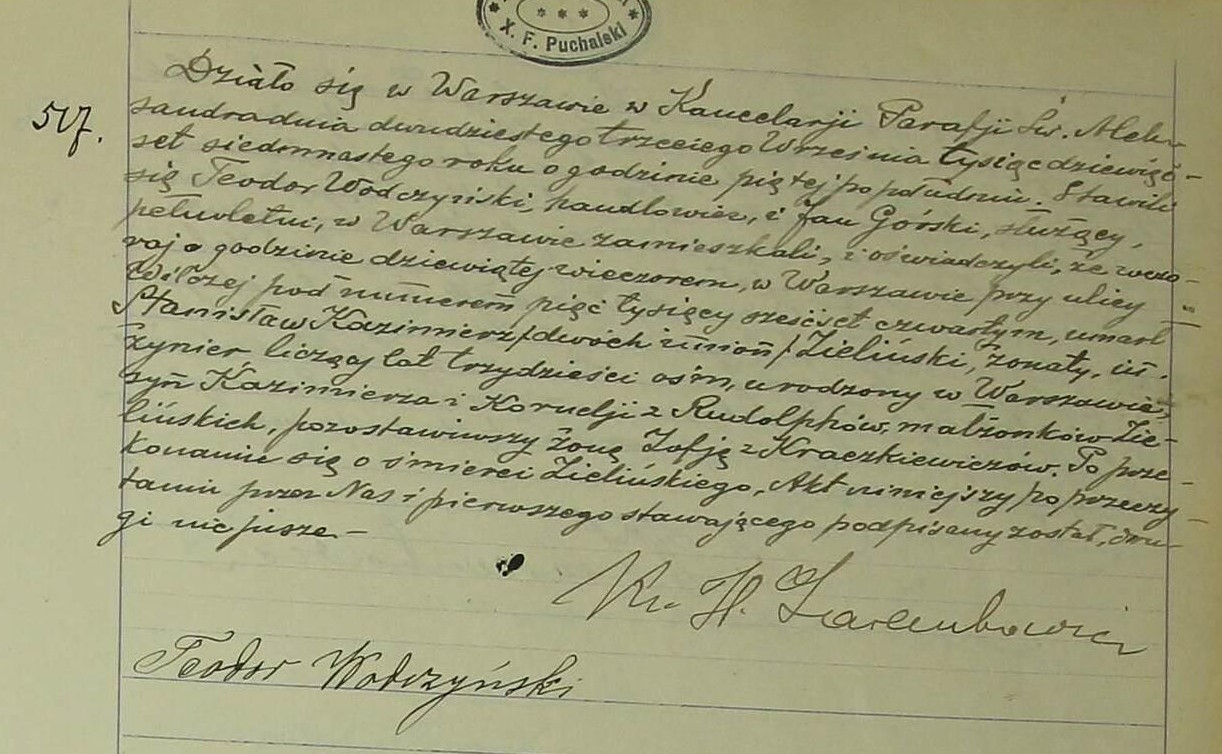 X. F. Puchalski
517.
Działo się w Warszawie w Kancelarji Parafji Św. Alek-
sandra dnia dwudziestego trzeciego Września tysiąc dziewięć-
set siedmnastego roku o godzinie piątej po południu. Stawili
się Teodor Wodczyński, handlowiec, i Jan Górski, służący,
pełnoletni, w Warszawie zamieszkali, i oświadczyli, że wczo-
raj o godzinie dziewiątej wieczorem, w Warszawie przy ulicy
Wilczej pod numerem pięć tysięcy sześćset czwartym, umarł
Stanisław Kazimierz /dwóch imion/ Zieliński, żonaty, in-
żynier liczący lat trzydzieści ośm, urodzony w Warszawie,
syn Kazimierza i Kornelji z Rudolphów, małżonków Zie-
lińskich, pozostawiwszy żonę Zofję z Kraczkiewiczów. Po prze-
konaniu się o śmierci Zielińskiego, Akt niniejszy po przeczy-
taniu przez Nas i pierwszego stawającego podpisany został, dru-
gi nie pisze.-
Ks. H.
Teodor Wodczyński